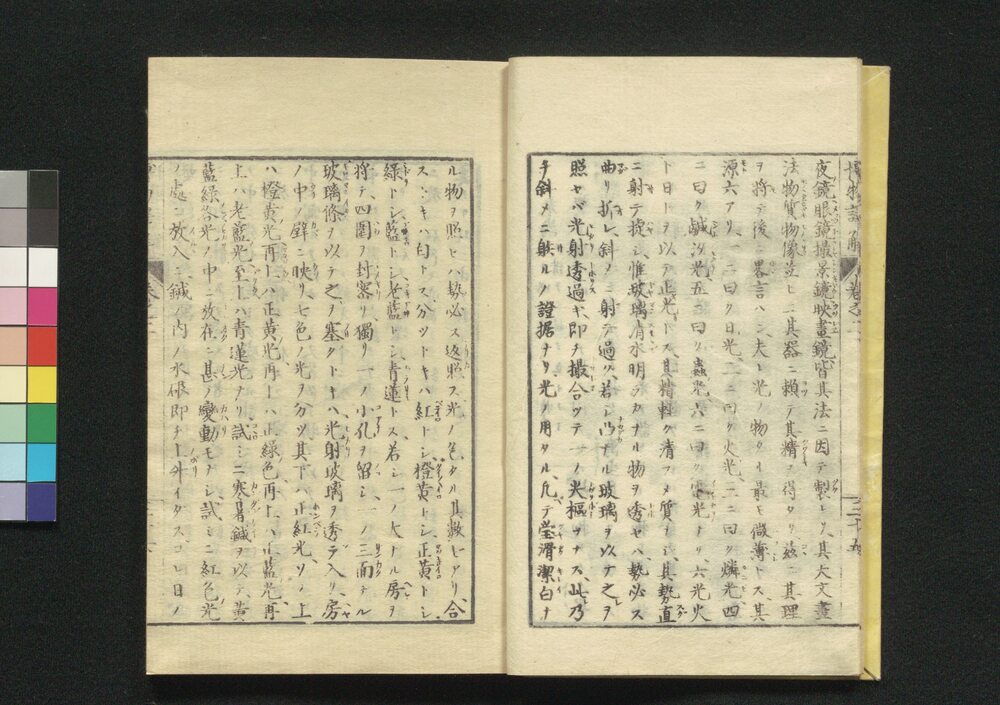 夜鏡眼鏡撮景鏡映畫鏡皆其法ニ因テ製シリ其大文畫
法物質物像並ヒニ其器ニ頼テ其精ヲ得タリ茲ニ其理
ヲ将テ後ニ畧言ハン夫レ光ノ物タル最モ微薄トス其
源六アリ一ニ曰ク日光二ニ曰ク火光三ニ曰ク燐光四
ニ曰ク鹹汐光五ニ曰ク蟲光六ニ曰ク電光ナリ六光火
ト日ヲ以テ正光トス其精輕ク清ヲメ質テシ其勢直
ニ射テ掟シ惟玻璃清水明ラカナル物ヲ透セハ勢必ス
曲リ折レ斜ノニ射テ過ク若シ凸ナル玻璃ヲ以テ之ヲ
照セバ光射透過キ即チ撮合ツテ一ノ光樞ヲナス此乃
チ斜メニ射ルノ證据ナリ光ノ用タル凡テ瑩滑潔白ナ
ル物ヲ照セハ勢必ス返照ス光ノ色タル其數七アリ合
スニキハ白トス分ツトキハ紅トシ橙黄トシ正黄トシ
緑トシ藍トシ老藍トシ青蓮トス若シ一ノ大ナル房ヲ
将テ四圍ヲ封密リ獨リ一ノ小孔ヲ留シ一ノ三面ナル
玻璃條ヲ以テ之ヲ塞クトキハ光射玻璃ヲ透テ入リ房
ノ中ノ壁ニ映リ七色ノ光ヲ分ツ其下ハ正紅光ソノ上
ハ橙黄光再上ハ正黄光再上ハ正緑色再上ハ正藍光再
上ハ老藍光至上ハ青蓮光ナリ試ミニ寒暑鍼ヲ以テ黄
藍緑各光ノ中ニ放在ニ甚ノ變動モナシ試ミニ紅色光
ノ處ニ放入ニ鍼ノ内ノ水銀即チ上升イタスコレ日ノ